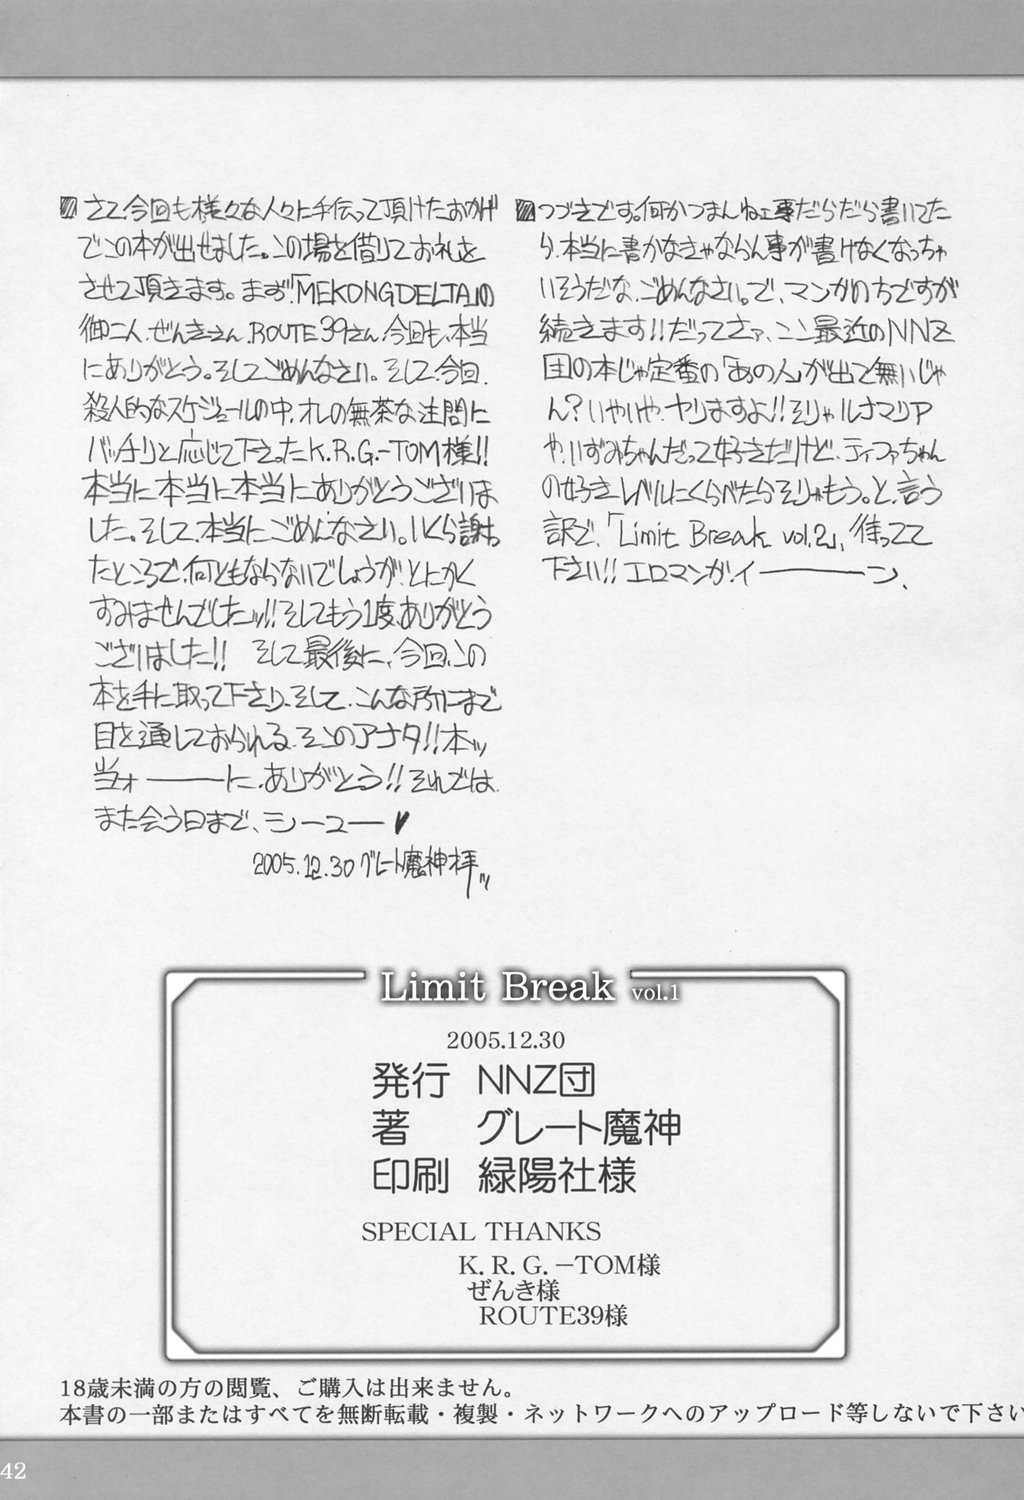 さて、今回も様々な人々に手伝って頂けたおかげ
でこの本が出せました。この場を借りてお礼を
させて頂きます。まず、「MEKONG DELTA」の
御二人、ぜんきさん、ROUTE39さん、今回も、本当
にありがとう。そしてごめんなさい。そして、今回、
殺人的なスケジュールの中、オレの無茶な注問に
バッチリと応じて下さったK.R.G.-TOM様!!
本当に本当に本当にありがとうございま
した。そして、本当にごめんなさい。いくら謝っ
たところで、何ともならないでしょうが、とにかく
すみませんでしたッ!!そしてもう1度、ありがとう
ございました!! そして最後に、今回、この
本を手に取って下さり、そして、こんな所にまで
目を通しておられる、そこのアナタ!!本ッ
当ォーーーに、ありがとう!!それでは、
また会う日まで、シーユー♥
2005.12.30 グレート魔神 拝ッ
つづきです。何かつまんねェ事だらだら書いてた
ら、本当に書かなきゃならん事が書けなくなっちゃ
いそうだな、ごめんなさい。で、マンガのちですが
続きます!!だってさァ、ここ最近のNNZ
団の本じゃ定番の「あの人」が出て無いじゃ
ん?いやいや、ヤりますよ!!そりゃルナマリア
や、いずみちゃんだって好きだけど、ティファちゃん
の好きレベルにくらべたらそりゃもう。と、言う
訳で、「Limit Break vol.2」、待ってて
下さい!!エロマンガ、イーーーン、
Limit Break vol.1
2005.12.30
発行 NNZ団
著 グレート魔神
印刷 緑陽社様
SPECIAL THANKS
K.R.G.−TOM様
ぜんき様
ROUTE39様
18歳未満の方の閲覧、ご購入は出来ません。
本書の一部またはすべてを無断転載・複製・ネットワークへのアップロード等しないで下さい
42